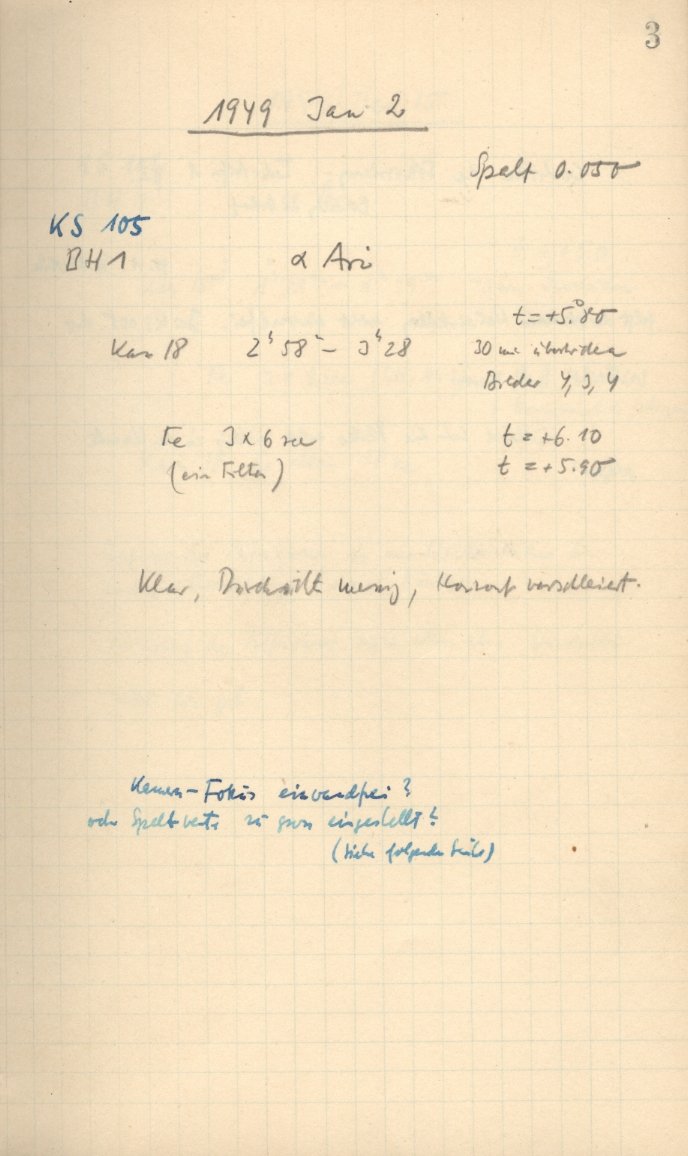 3
1949 Jan. 2
Spalt 0.050
KS 105
BH 1 α Ari
t = +5.°80
Kas 18 2ʰ58ᵐ – 3ʰ28 30 min
Bilder 4, 3, 4
Fe 3 × 6 sec t = +6.10
(ein Filter) t = +5.90
Klar, Durchsicht mässig, Horizont verschleiert.
Kamera-Fokus einwandfrei?
oder Spaltweite zu gross eingestellt?
(siehe folgende Seite)